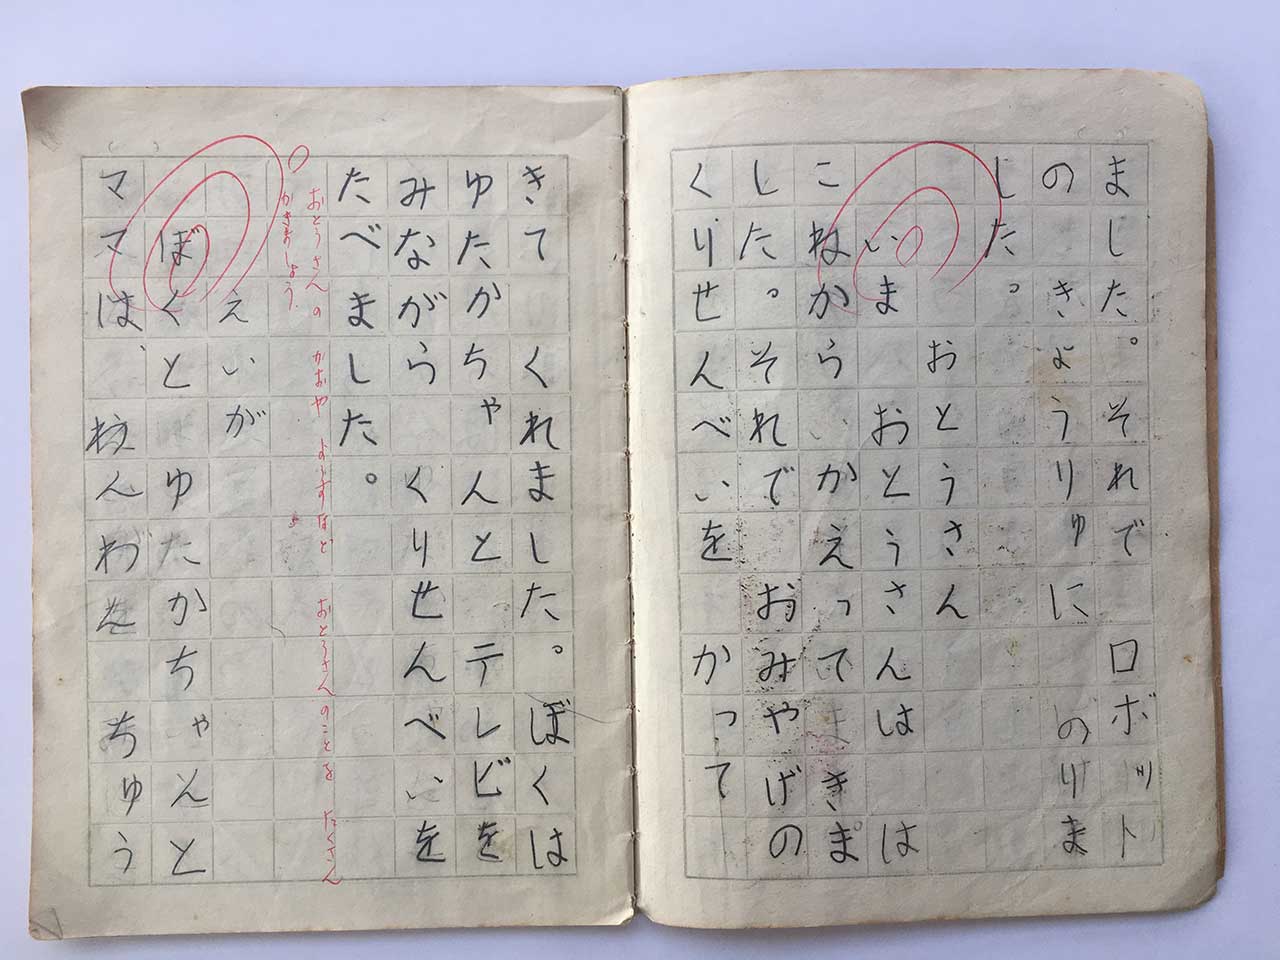 ました。それで ロボット
の きょうりゅうに のりま
した。
おとうさん
いま おとうさんは は
こねから かえって きま
した。それで おみやげの
くりせんべいを かって
きて くれました。ぼくは
ゆたかちゃんと テレビを
みながら くりせんべいを
たべました。
おとうさんの かおや ようすなど おとうさんのことを たくさん
かきましょう。
えいが
ぼくと ゆたかちゃんと
ママは、 ちゅう